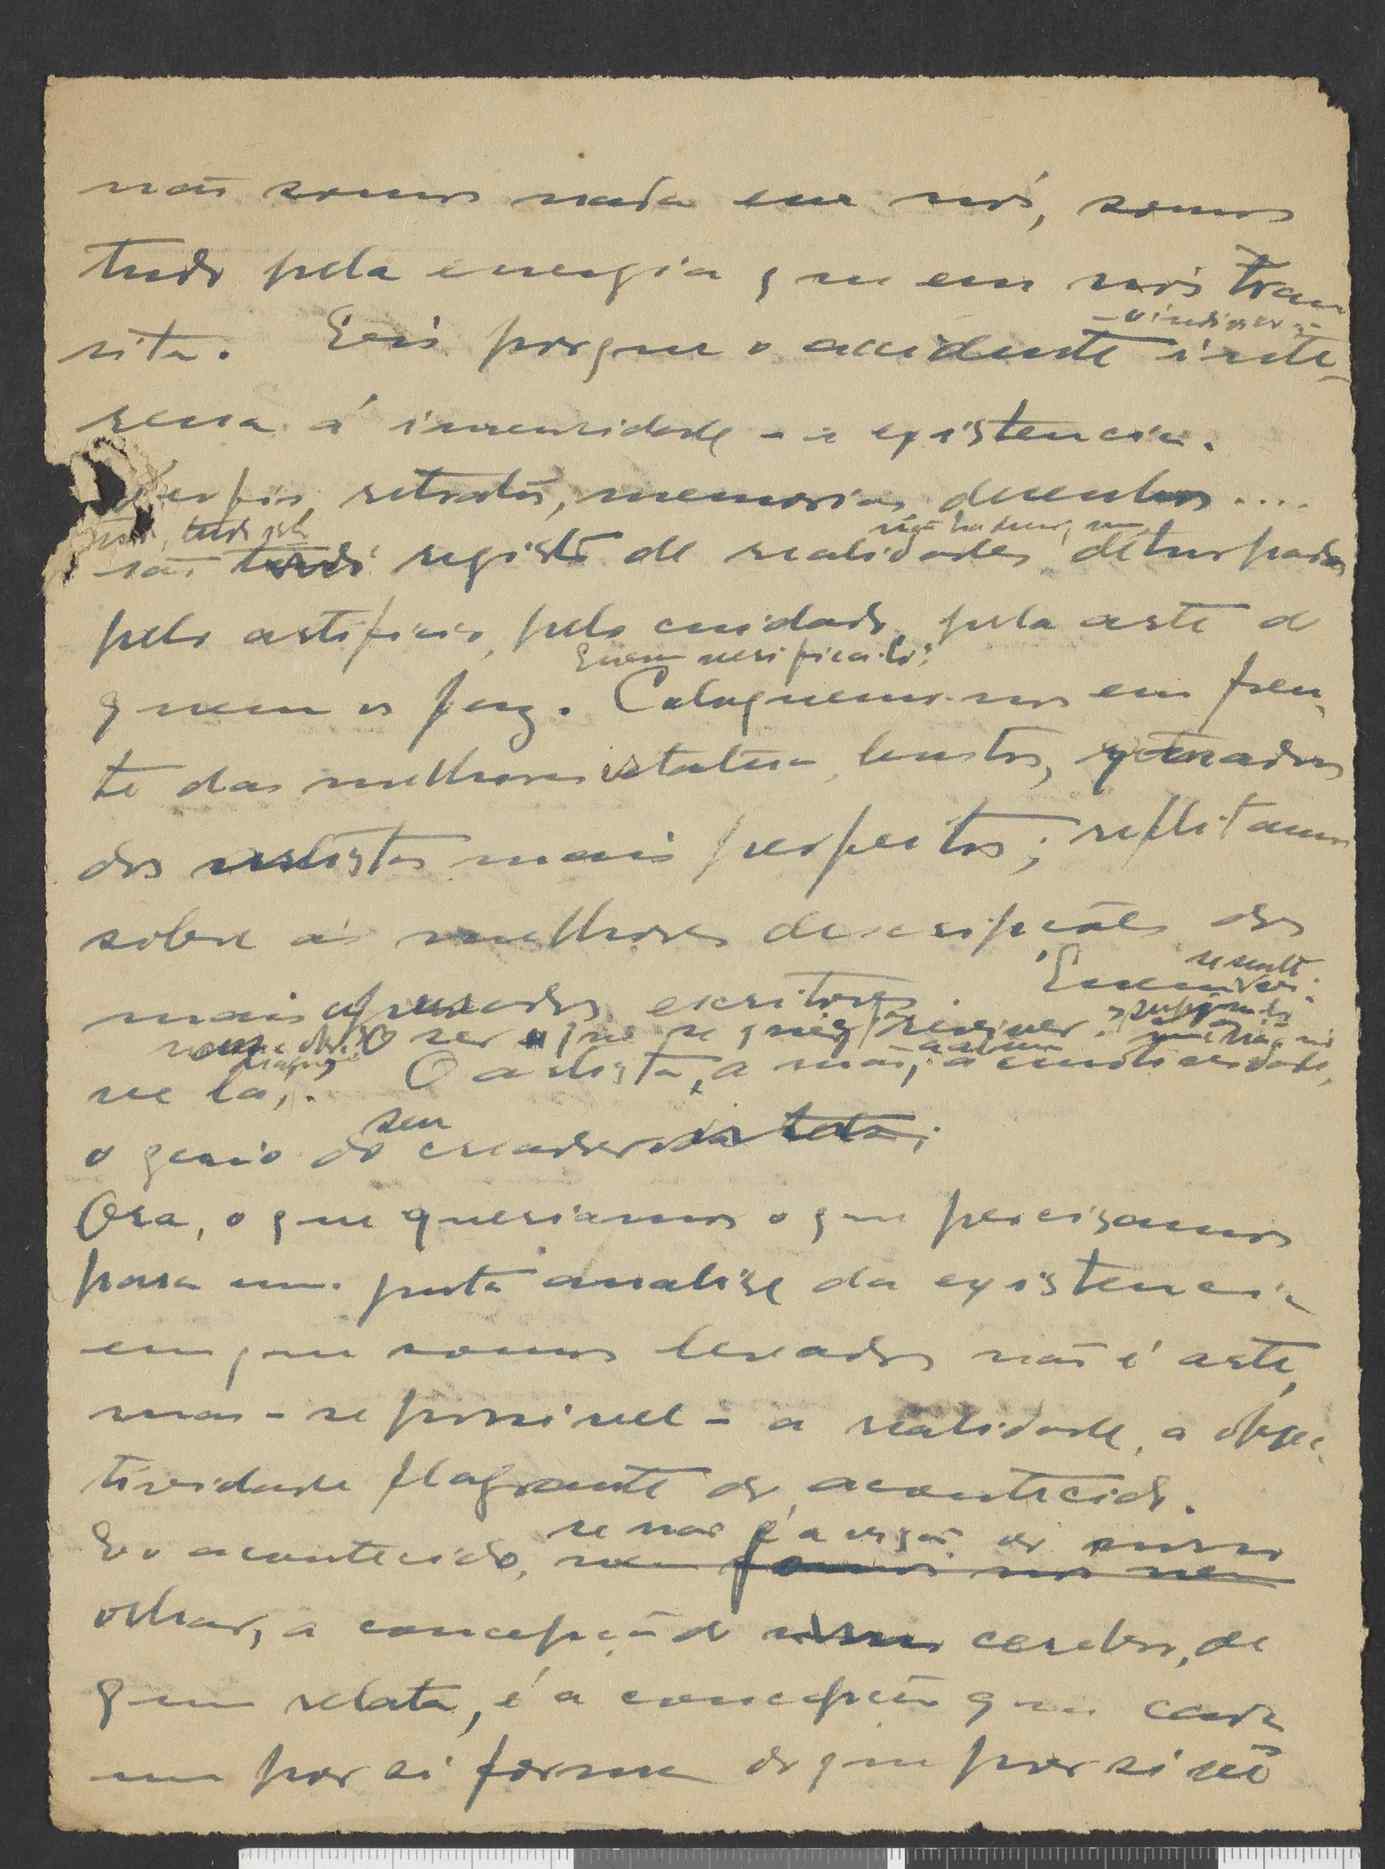 não somos nada em nós, somos
tudo pela energia que em nós tran
sita. Eis porque o accidente inte-
ressa á immensidade - a existencia.
retratos, memorias, desenhos....
tudo
são registo de realidades deturpadas
pelo artificio, pelo cuidado, pela arte de
Quem verifical-o?
quem os faz. Coloquemo-nos em fren-
te das melhores estatuas, bustos, quadros
dos artistas mais perfeitos; reflitamos
sobre as melhores descripções dos
mais apurados escritores.
O ser que se quiz
O artista, a mão, a emotividade,
seu
o genio do creador
Ora, o que queriamos o que precisamos
para uma justa analise da existencia
em que somos levados não é arte,
mas - se possivel - a realidade, a objec-
tividade flagrante do acontecido.
se não é a visão do nosso
E o acontecido,
olhar, a concepção do cerebro, de
quem relata, é a concepção que cada
um por si forma do que por si só